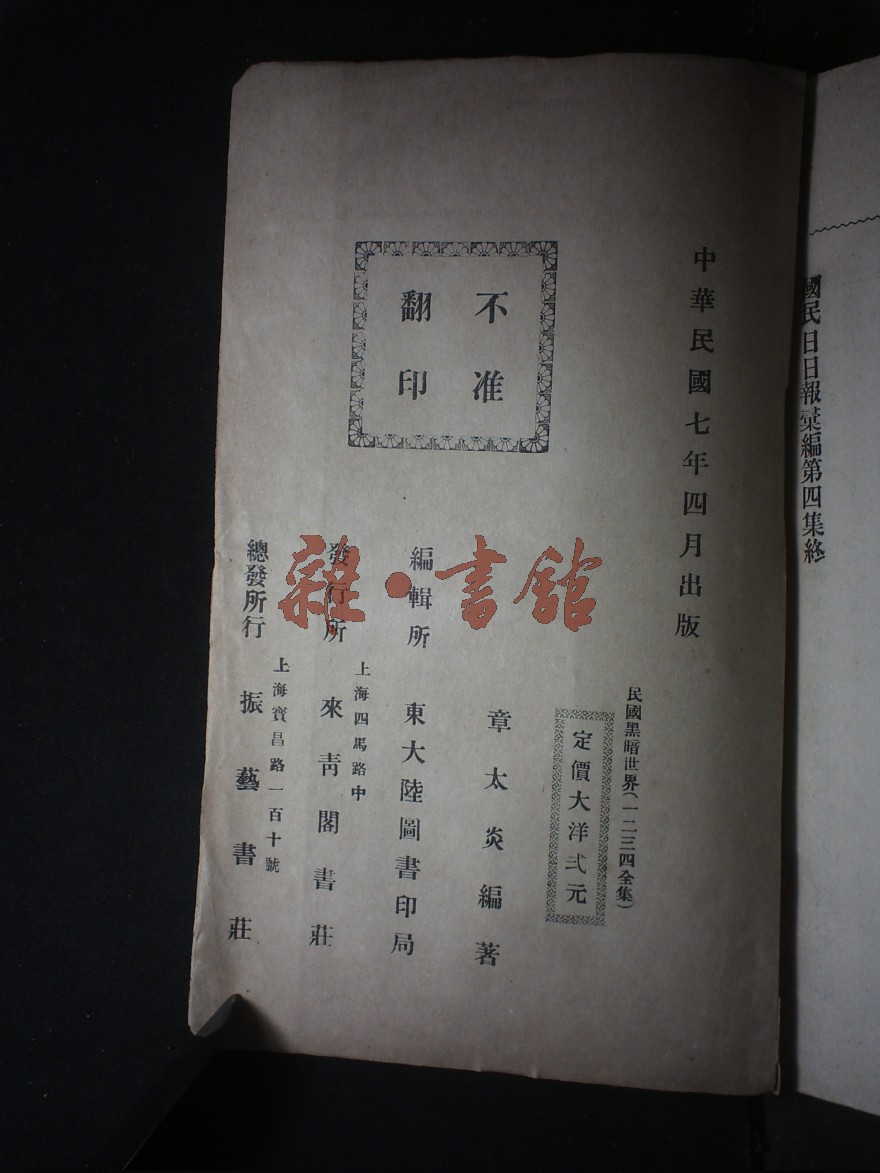 國民日日報彙編第四集終
中華民國七年四月出版
不准
翻印
民國黑暗世界(一二三四全集)
定價大洋弍元
章太炎編著
編輯所 東大陸圖書印局
上海四馬路中
發行所 來靑閣書莊
上海寶昌路一百十號
總發所行 振藝書莊
雜·書館